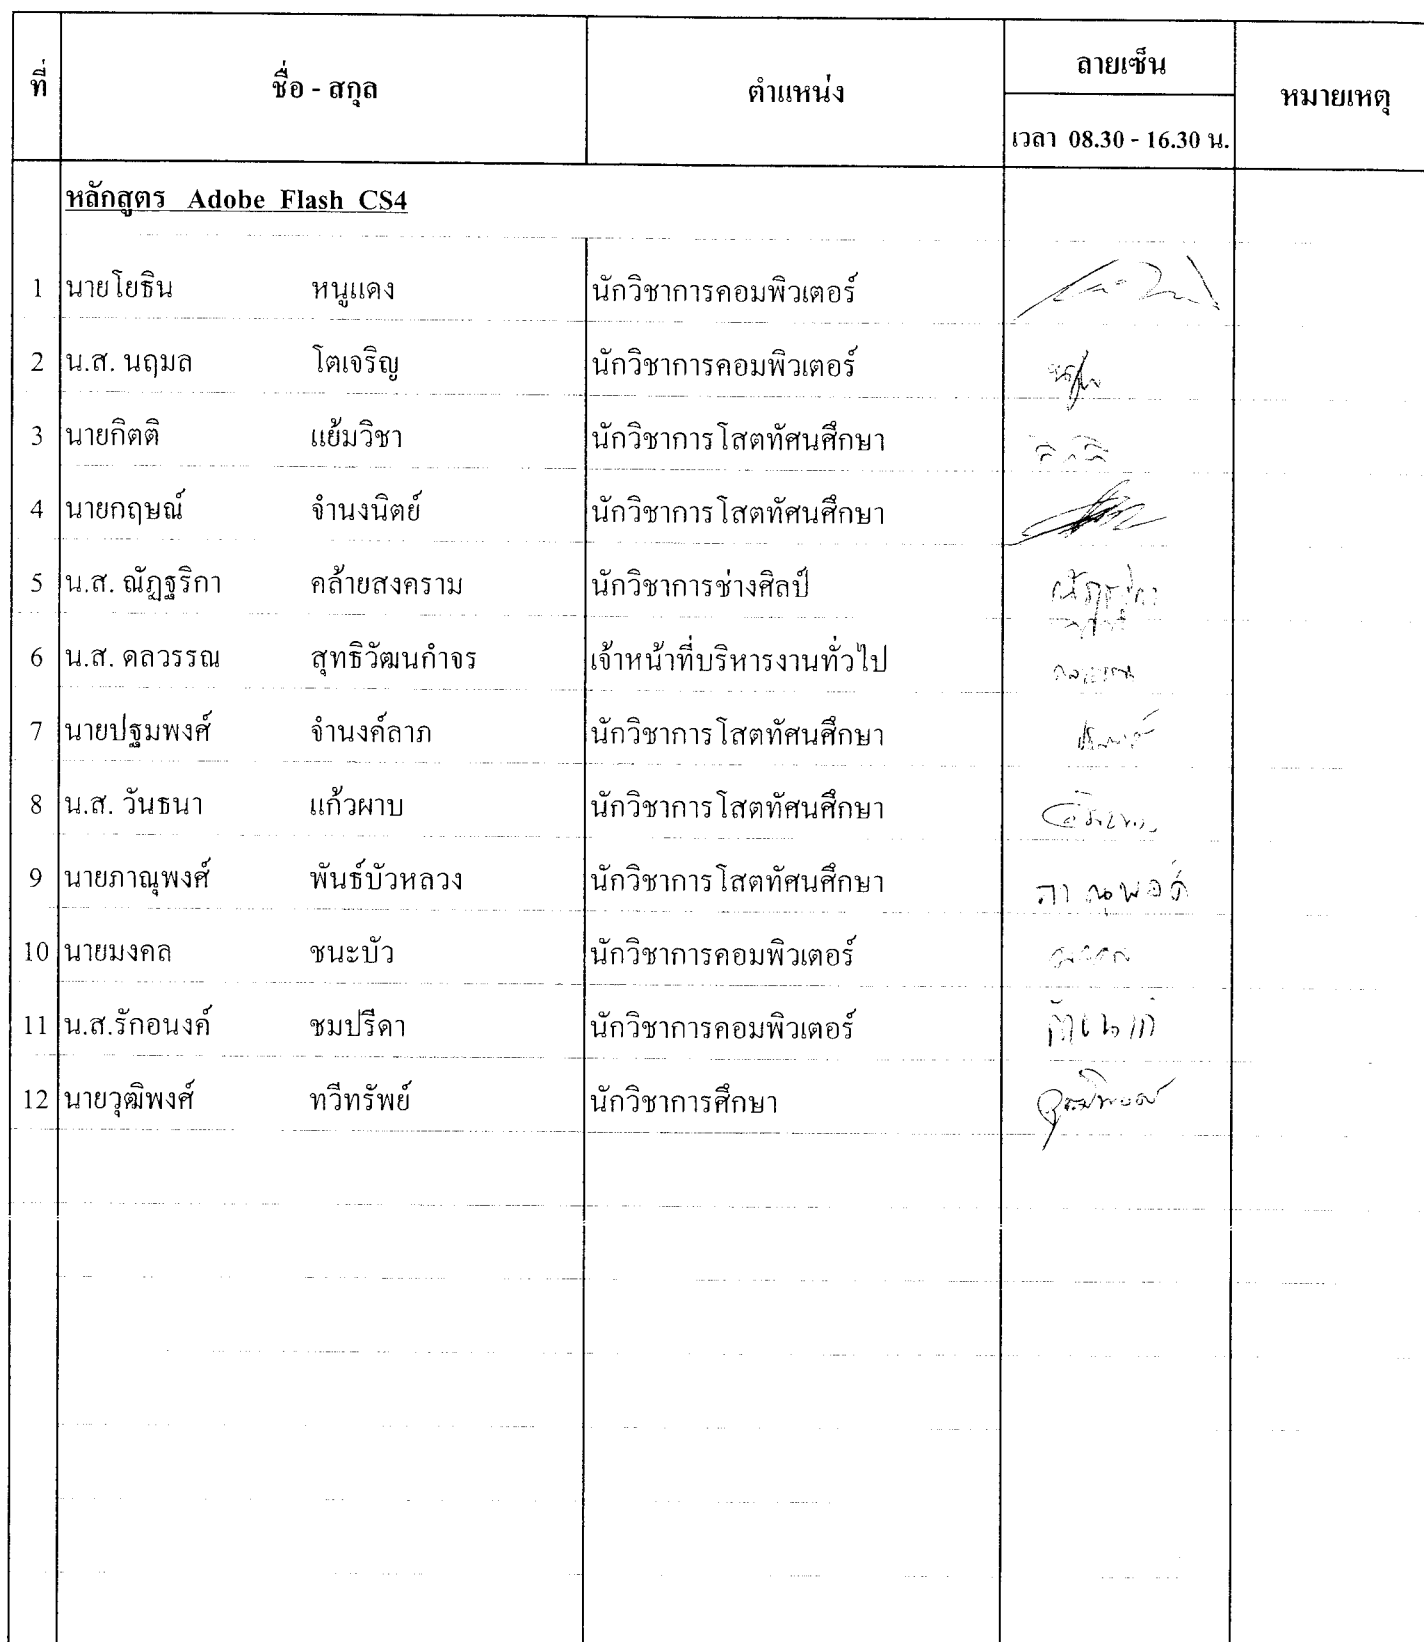 ที่ ชื่อ - สกุล ตำแหน่ง ลายเซ็น หมายเหตุ
เวลา 08.30 - 16.30 น.
หลักสูตร Adobe Flash CS4
1 นายโยธิน หนูแดง นักวิชาการคอมพิวเตอร์
2 น.ส. นฤมล โตเจริญ นักวิชาการคอมพิวเตอร์
3 นายกิตติ แย้มวิชา นักวิชาการโสตทัศนศึกษา กิตติ
4 นายกฤษณ์ จำนงนิตย์ นักวิชาการโสตทัศนศึกษา
5 น.ส. ณัฏฐริกา คล้ายสงคราม นักวิชาการช่างศิลป์ ณัฏฐริกา
6 น.ส. ดลวรรณ สุทธิวัฒนกำจร เจ้าหน้าที่บริหารงานทั่วไป ดลวรรณ
7 นายปฐมพงศ์ จำนงค์ลาภ นักวิชาการโสตทัศนศึกษา
8 น.ส. วันธนา แก้วผาบ นักวิชาการโสตทัศนศึกษา
9 นายภาณุพงศ์ พันธ์บัวหลวง นักวิชาการโสตทัศนศึกษา ภาณุพงศ์
10 นายมงคล ชนะบัว นักวิชาการคอมพิวเตอร์ มงคล
11 น.ส.รักอนงค์ ชมปรีดา นักวิชาการคอมพิวเตอร์
12 นายวุฒิพงศ์ ทวีทรัพย์ นักวิชาการศึกษา วุฒิพงศ์